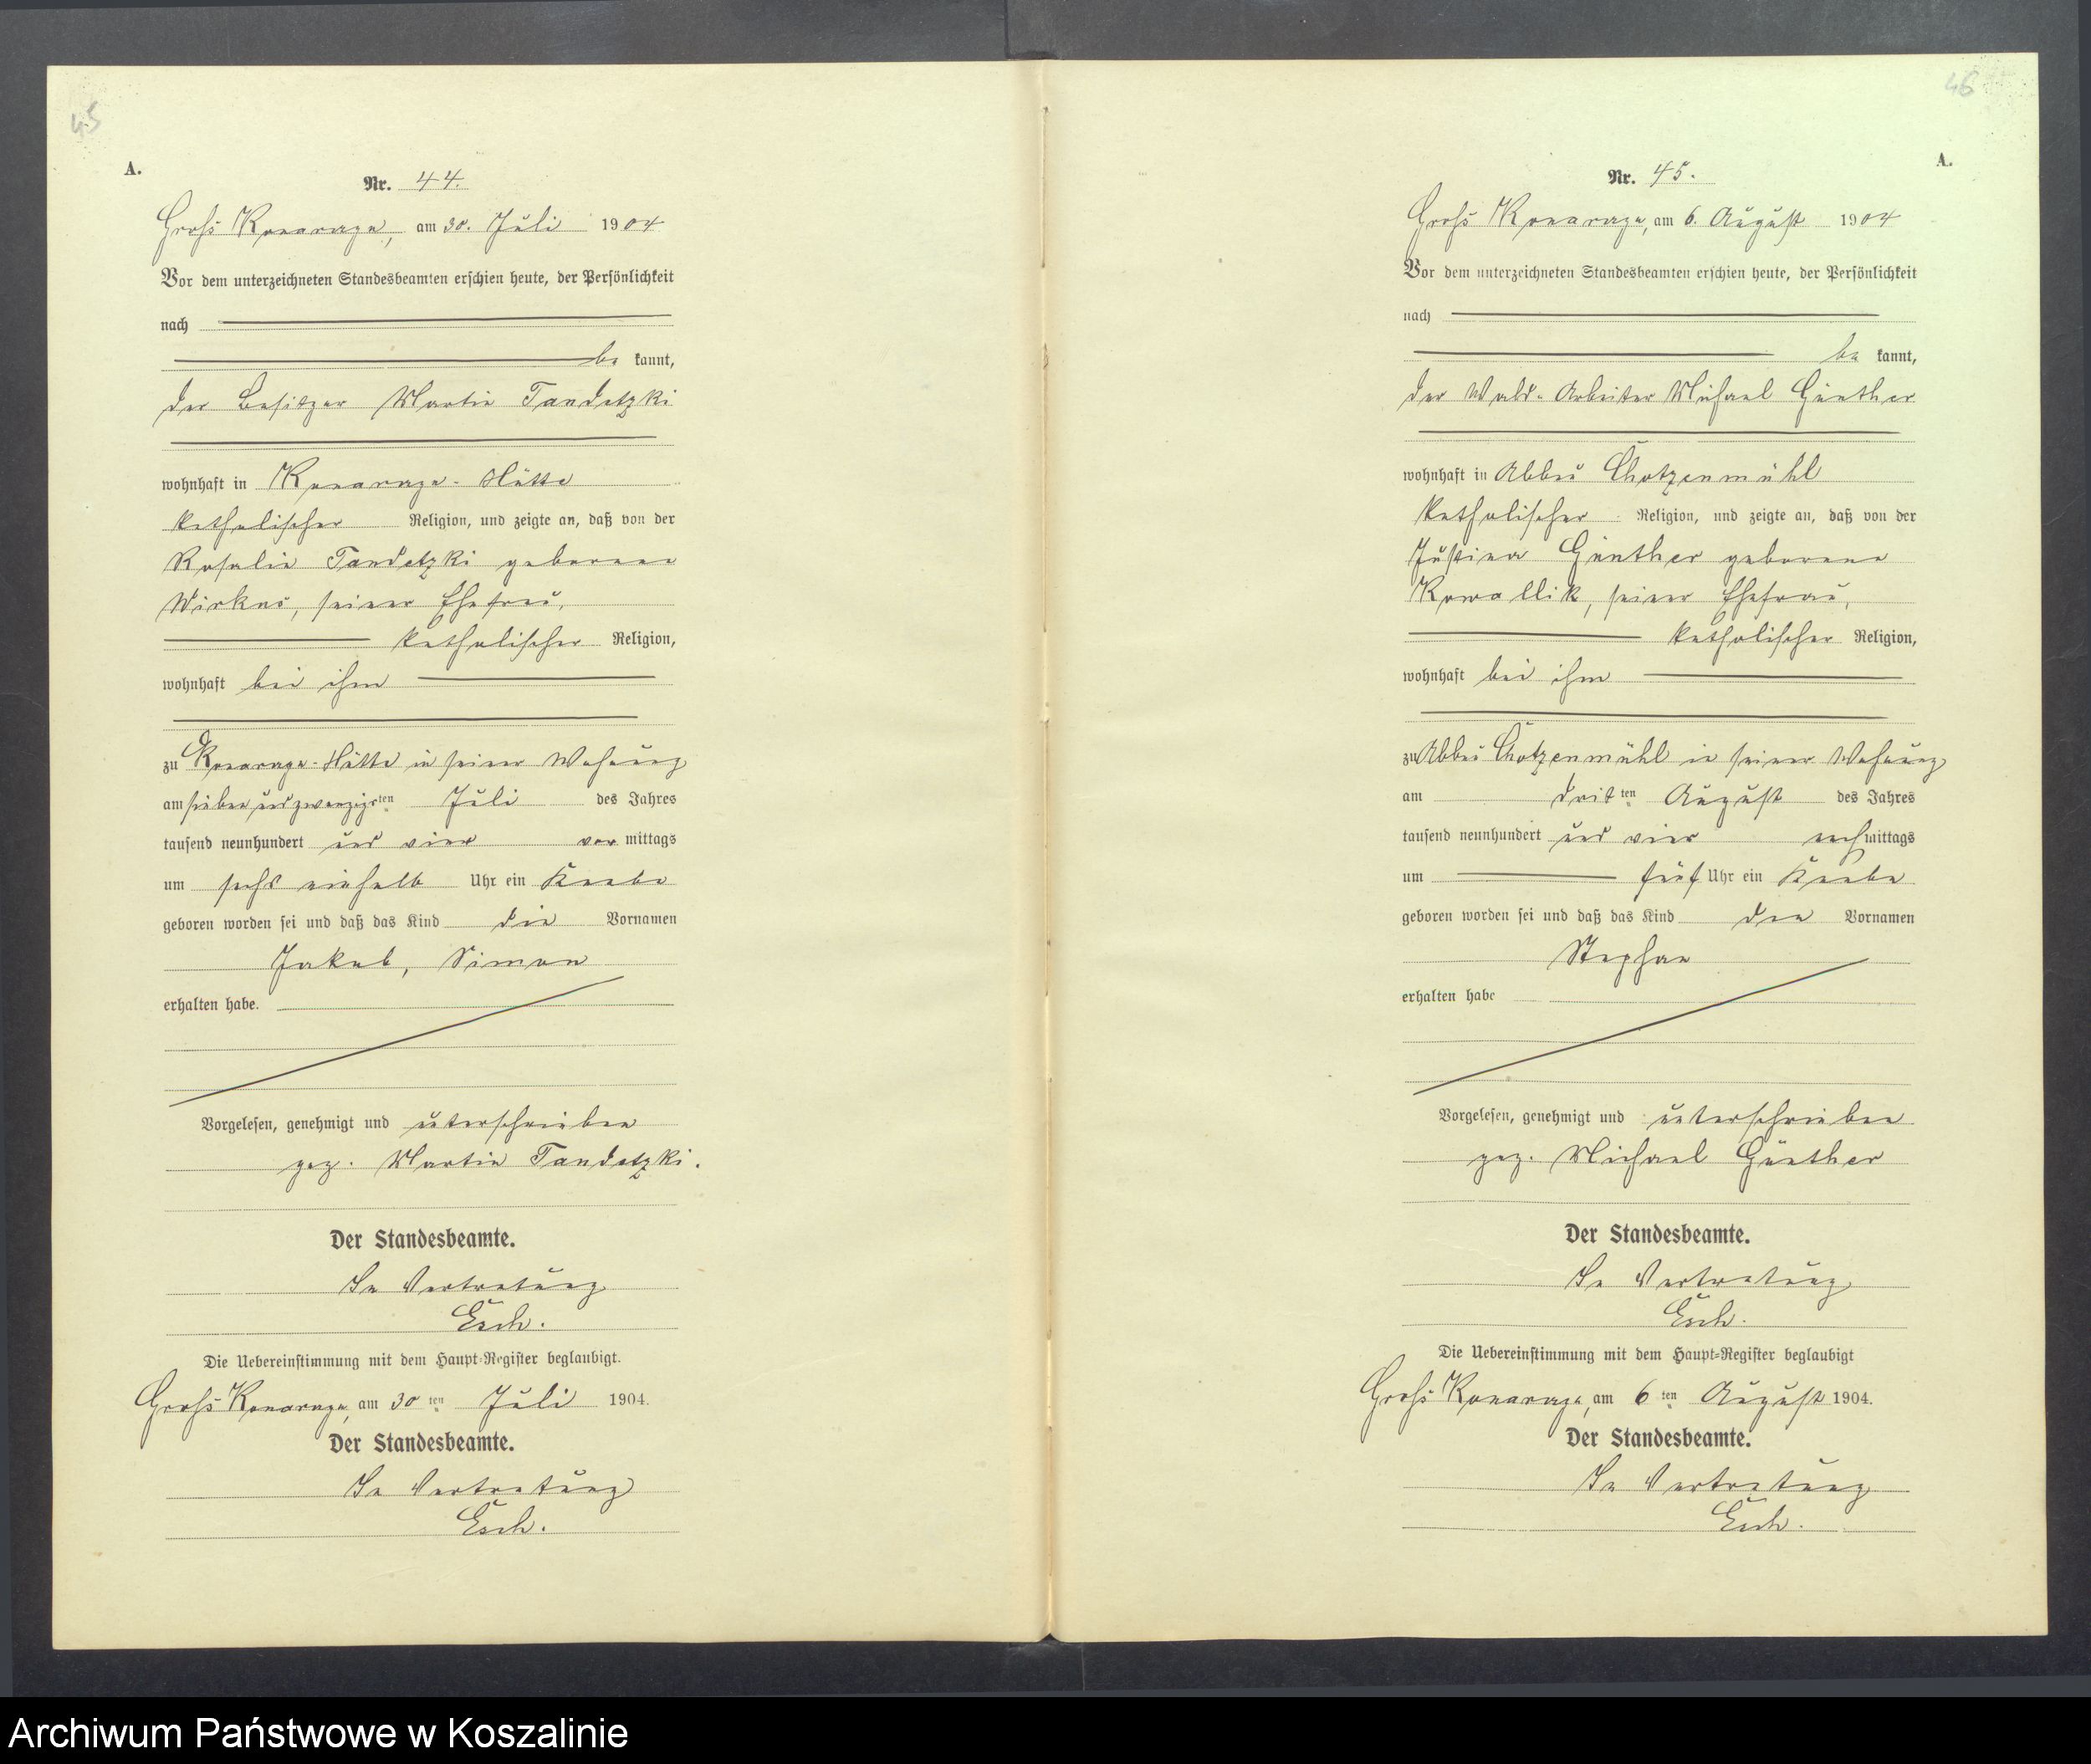 45
A.
Nr. 44.
Gross Konarzyn, am 30. Juli 1904
Vor dem unterzeichneten Standesbeamten erschien heute, der Persönlichkeit
nach
be kannt,
der Besitzer Martin Tandetzki
wohnhaft in Konarzyn-Hütte
katholischer Religion, und zeigte an, daß von der
Rosalie Tandetzki geborene
Wirkus, seiner Ehefrau,
katholischer Religion,
wohnhaft bei ihm
zu Konarzyn-Hütte in seiner Wohnung
am sieben und zwanzigsten Juli des Jahres
tausend neunhundert und vier vor mittags
um sechs einhalb Uhr ein Knabe
geboren worden sei und daß das Kind die Vornamen
Jakob, Simon
erhalten habe.
Vorgelesen, genehmigt und unterschrieben
gez. Martin Tandetzki.
Der Standesbeamte.
In Vertretung
Esch.
Die Uebereinstimmung mit dem Haupt-Register beglaubigt.
Gross Konarzyn, am 30 ten Juli 1904.
Der Standesbeamte.
In Vertretung
Esch.
46
A.
Nr. 45.
Gross Konarzyn, am 6. August 1904
Vor dem unterzeichneten Standesbeamten erschien heute, der Persönlichkeit
nach
be kannt,
der Wald-Arbeiter Michael Günther
wohnhaft in Abbau Chotzenmühl
katholischer Religion, und zeigte an, daß von der
Justina Günther geborene
Kowallik, seiner Ehefrau,
katholischer Religion,
wohnhaft bei ihm
zu Abbau Chotzenmühl in seiner Wohnung
am dritten August des Jahres
tausend neunhundert und vier nachmittags
um fünf Uhr ein Knabe
geboren worden sei und daß das Kind den Vornamen
Stephan
erhalten habe
Vorgelesen, genehmigt und unterschrieben
gez. Michael Günther
Der Standesbeamte.
In Vertretung
Esch.
Die Uebereinstimmung mit dem Haupt-Register beglaubigt
Gross Konarzyn, am 6 ten August 1904.
Der Standesbeamte.
In Vertretung
Esch.
Archiwum Państwowe w Koszalinie